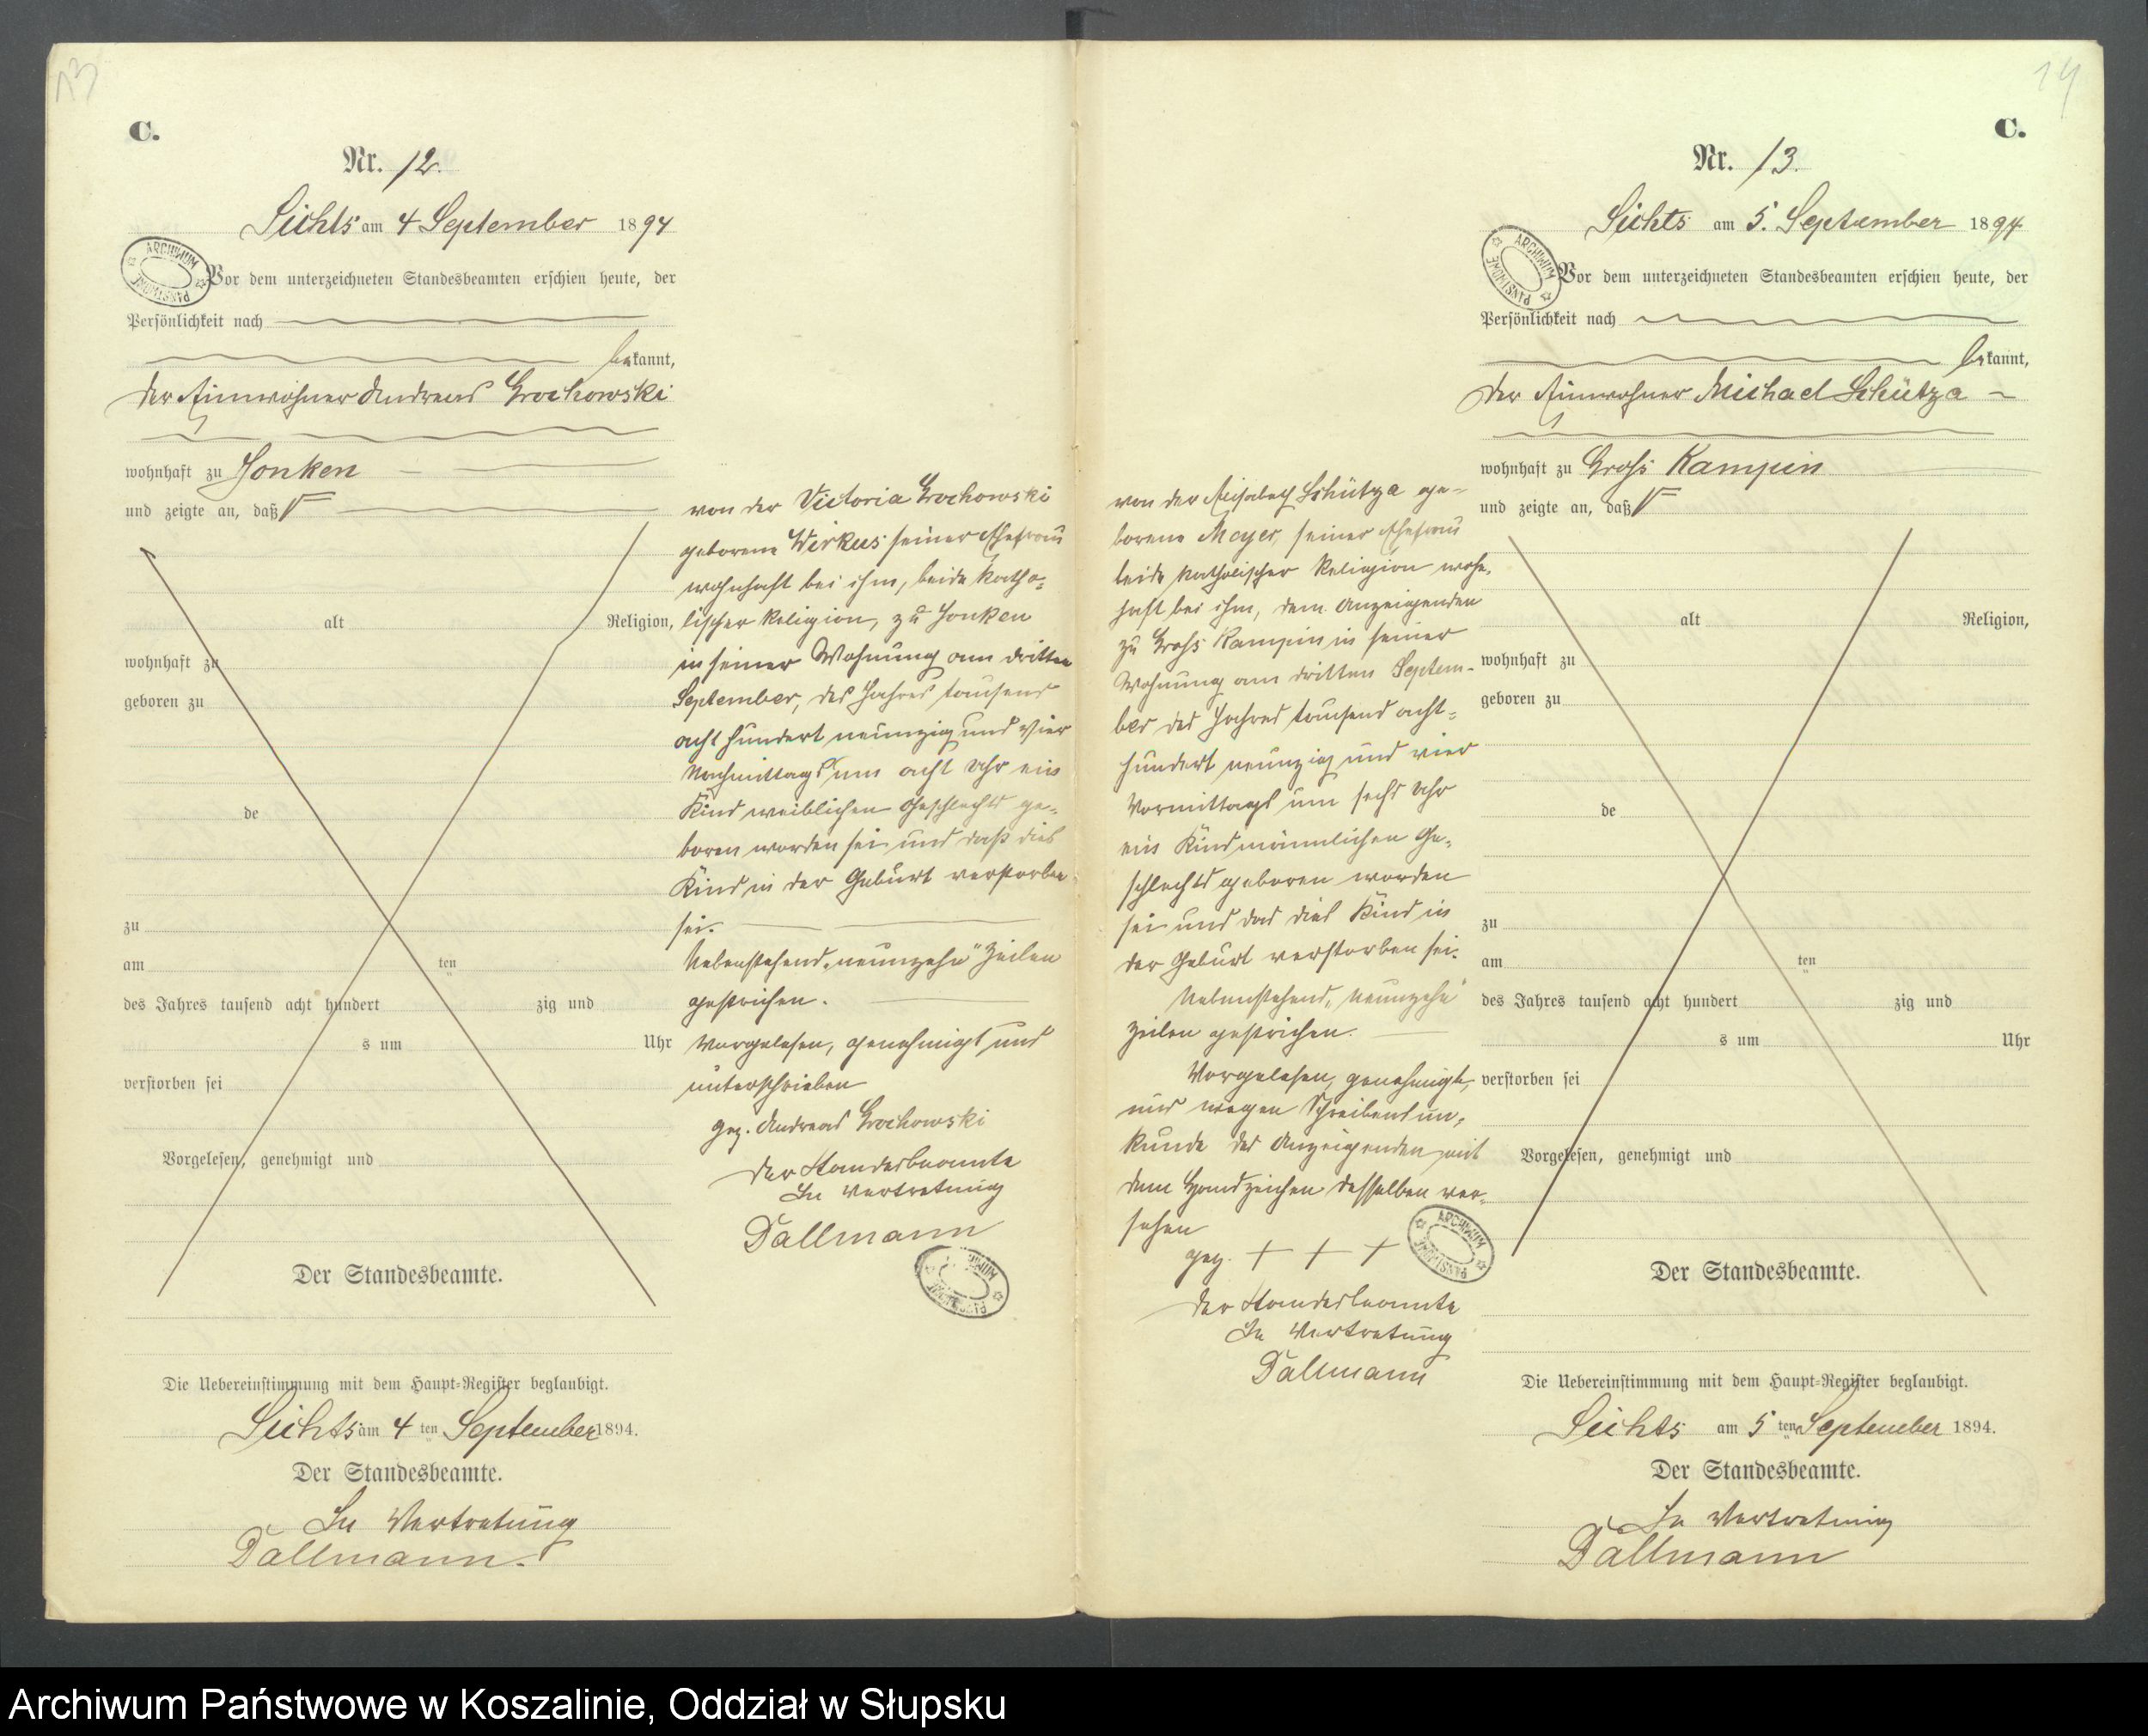 13
C.
Nr. 12.
Lichts am 4 September 1894
ARCHIWUM PAŃSTWOWE
Vor dem unterzeichneten Standesbeamten erschien heute, der
Persönlichkeit nach
bekannt,
der Einwohner Andreas Grochowski
wohnhaft zu Jonken
und zeigte an, daß
alt Religion,
wohnhaft zu
geboren zu
de
zu
am ten
des Jahres tausend acht hundert zig und
s um Uhr
verstorben sei
Vorgelesen, genehmigt und
Der Standesbeamte.
Die Uebereinstimmung mit dem Haupt-Register beglaubigt.
Lichts am 4 ten September 1894.
Der Standesbeamte.
In Vertretung
Dallmann.
von der Victoria Grochowski
geborene Wirkus seiner Ehefrau
wohnhaft bei ihm, beide katho-
lischer Religion, zu Jonken
in seiner Wohnung am dritten
September, des Jahres tausend
acht hundert neunzig und vier
Nachmittags um acht Uhr ein
Kind weiblichen Geschlechts ge-
boren worden sei und daß dies
Kind in der Geburt verstorben
sei.
Nebenstehend „neunzehn" Zeilen
gestrichen.
Vorgelesen, genehmigt und
unterschrieben
gez. Andreas Grochowski
Der Standesbeamte
In Vertretung
Dallmann
ARCHIWUM PAŃSTWOWE
14
C.
Nr. 13.
Lichts am 5. September 1894
ARCHIWUM PAŃSTWOWE
Vor dem unterzeichneten Standesbeamten erschien heute, der
Persönlichkeit nach
bekannt,
der Einwohner Michael Schütza
wohnhaft zu Gross Kampin
und zeigte an, daß
alt Religion,
wohnhaft zu
geboren zu
de
zu
am ten
des Jahres tausend acht hundert zig und
s um Uhr
verstorben sei
Vorgelesen, genehmigt und
Der Standesbeamte.
Die Uebereinstimmung mit dem Haupt-Register beglaubigt.
Lichts am 5 ten September 1894.
Der Standesbeamte.
In Vertretung
Dallmann
von der Elisabeth Schütza ge-
borene Meyer, seiner Ehefrau
beide katholischer Religion wohn-
haft bei ihm, dem Anzeigenden
zu Gross Kampin in seiner
Wohnung am dritten Septem-
ber des Jahres tausend acht-
hundert neunzig und vier
Vormittags um sechs Uhr
ein Kind männlichen Ge-
schlechts geboren worden
sei und das dies Kind in
der Geburt verstorben sei.
Nebenstehend „neunzehn"
Zeilen gestrichen.
Vorgelesen, genehmigt,
und wegen Schreibensun-
kunde des Anzeigenden mit
dem Handzeichen desselben ver-
sehen
gez. + + +
ARCHIWUM PAŃSTWOWE
Der Standesbeamte
In Vertretung
Dallmann
Archiwum Państwowe w Koszalinie, Oddział w Słupsku